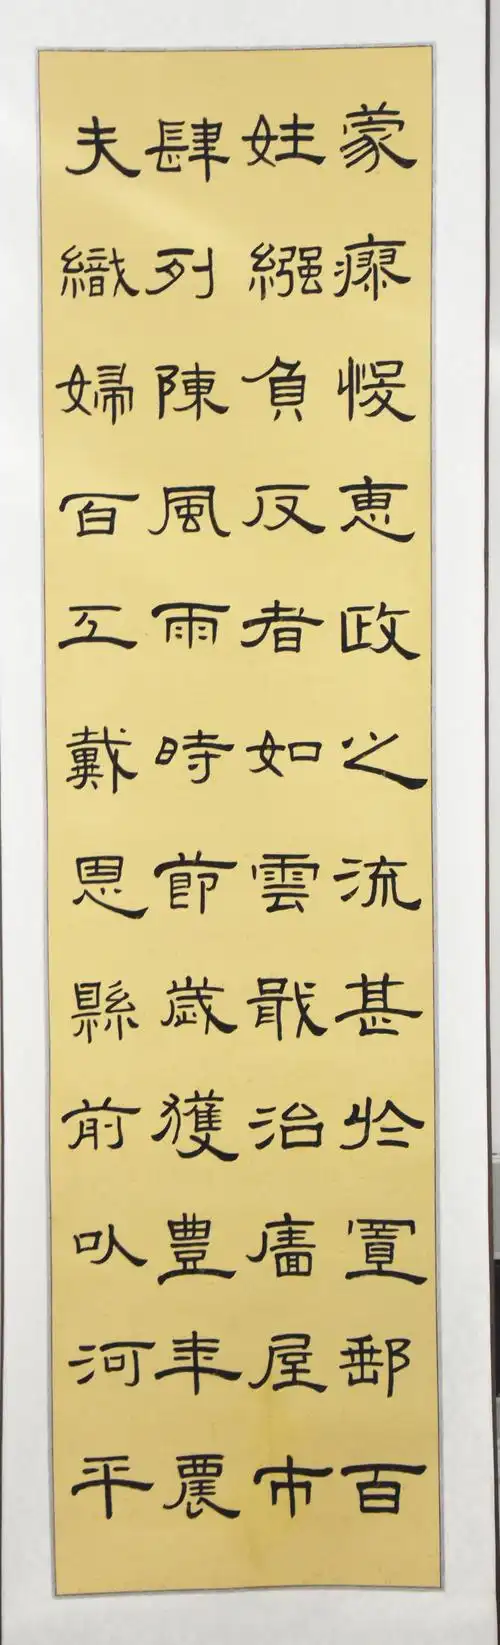 蒙瘳悛惠政之流甚於置郵百
姓繈負反者如雲戢治廧屋市
肆列陳風雨時節歲獲豐年農
夫織婦百工戴恩縣前以河平